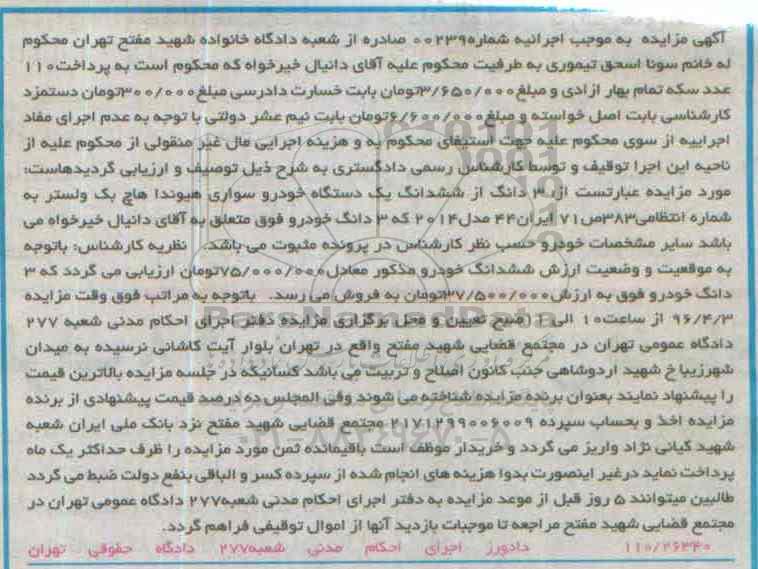 آگهی مزایده به موجب اجرائیه شماره۰۰۲۳۹ صادره از شعبه دادگاه خانواده شهید مفتح تهران محکوم
له خانم سونا اسحق تیموری به طرفیت محکوم علیه آقای دانیال خیرخواه که محکوم است به پرداخت۱۱۰
عدد سکه تمام بهار آزادی و مبلغ۳/۶۵۰/۰۰۰تومان بابت خسارت دادرسی مبلغ۳۰۰/۰۰۰تومان دستمزد
کارشناسی بابت اصل خواسته و مبلغ۶/۶۰۰/۰۰۰تومان بابت نیم عشر دولتی با توجه به عدم اجرای مفاد
اجراییه از سوی محکوم علیه جهت استیفای محکوم به و هزینه اجرایی مال غیر منقولی از محکوم علیه از
ناحیه این اجرا توقیف و توسط کارشناس رسمی دادگستری به شرح ذیل توصیف و ارزیابی گردیدهاست:
مورد مزایده عبارتست از: ۳ دانگ از ششدانگ یک دستگاه خودرو سواری هیوندا هاچ بک ولستر به
شماره انتظامی۳۸۳ص۷۱ ایران۴۴ مدل۲۰۱۴ که ۳ دانگ خودرو فوق متعلق به آقای دانیال خیرخواه می
باشد سایر مشخصات خودرو حسب نظر کارشناس در پرونده مثبوت می باشد. نظریه کارشناس: باتوجه
به موقعیت و وضعیت ارزش ششدانگ خودرو مذکور معادل۷۵/۰۰۰/۰۰۰تومان ارزیابی می گردد که ۳
دانگ خودرو فوق به ارزش۳۷/۵۰۰/۰۰۰تومان به فروش می رسد. باتوجه به مراتب فوق وقت مزایده
۹۶/۴/۳ از ساعت۱۰ الی۱۱ صبح تعیین و محل برگزاری مزایده دفتر اجرای احکام مدنی شعبه ۲۷۷
دادگاه عمومی تهران در مجتمع قضایی شهید مفتح واقع در تهران بلوار آیت کاشانی نرسیده به میدان
شهرزیبا خ شهید اردوشاهی جنب کانون اصلاح و تربیت می باشد کسانیکه در جلسه مزایده بالاترین قیمت
را پیشنهاد نمایند بعنوان برنده مزایده شناخته می شوند وفی المجلس ده درصد قیمت پیشنهادی از برنده
مزایده اخذ و بحساب سپرده ۲۱۷۱۲۹۹۰۰۶۰۰۹ مجتمع قضایی شهید مفتح نزد بانک ملی ایران شعبه
شهید کیانی نژاد واریز می گردد و خریدار موظف است باقیمانده ثمن مورد مزایده را ظرف حداکثر یک ماه
پرداخت نماید درغیر اینصورت بدوا هزینه های انجام شده از سپرده کسر و الباقی بنفع دولت ضبط می گردد
طالبین میتوانند ۵ روز قبل از موعد مزایده به دفتر اجرای احکام مدنی شعبه۲۷۷ دادگاه عمومی تهران در
مجتمع قضایی شهید مفتح مراجعه تا موجبات بازدید آنها از اموال توقیفی فراهم گردد.
۱۱۰/۲۶۳۴۰ دادورز اجرای احکام مدنی شعبه۲۷۷ دادگاه حقوقی تهران
ParsNamadData
۰۲۱-۸۸۳۴۹۶۷۰-۵